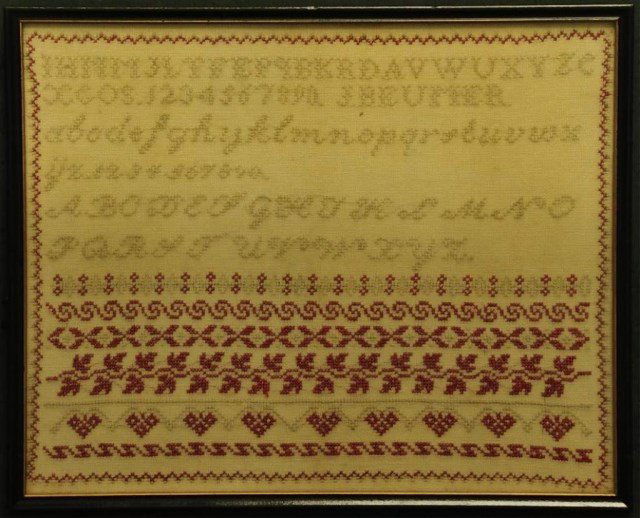 IHNMJLTFEPBKRDAVWUXYZC
XGOS.1234567890. J BEUMER
abcdefghijklmnopqrstuvwx
ijz.1234567890.
ABCDEFGHIKLMNO
PQRSTUVWXYZ.